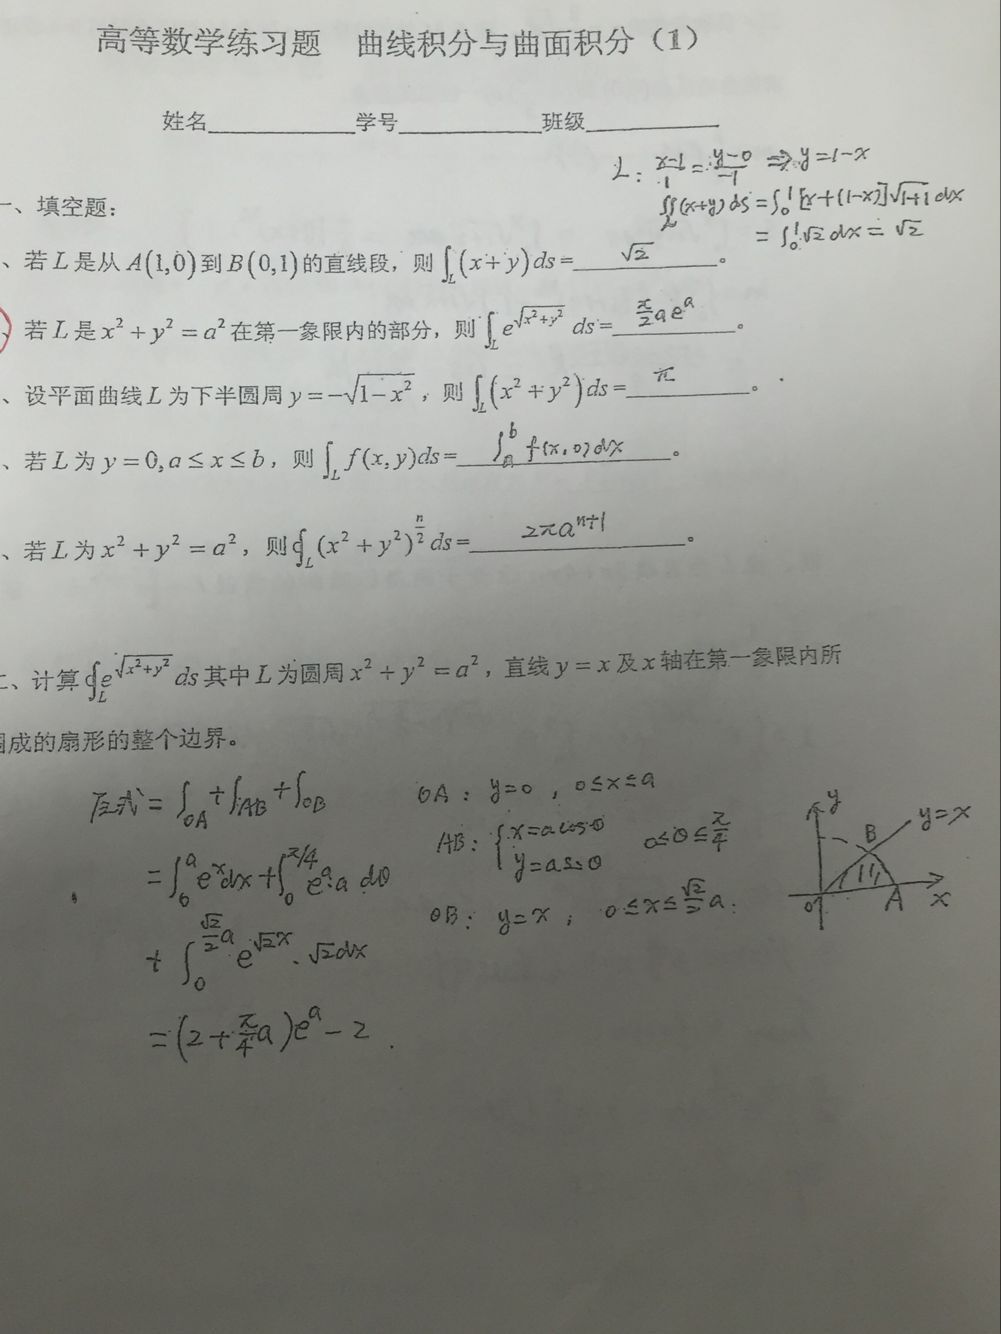 高等数学练习题 曲线积分与曲面积分（1）
姓名____________学号____________班级____________
L: (x-1)/1 = (y-0)/-1 ⇒ y=1-x
一、填空题：
∫_L (x+y)ds = ∫₀¹[x+(1-x)]√(1+1) dx
= ∫₀¹ √2 dx = √2
、若 L 是从 A(1,0) 到 B(0,1) 的直线段，则 ∫_L (x+y)ds = √2 。
、若 L 是 x²+y²=a² 在第一象限内的部分，则 ∫_L e^√(x²+y²) ds = π/2 a e^a 。
、设平面曲线 L 为下半圆周 y=-√(1-x²)，则 ∫_L (x²+y²)ds = π 。
、若 L 为 y=0, a≤x≤b，则 ∫_L f(x,y)ds = ∫_a^b f(x,0)dx 。
、若 L 为 x²+y²=a²，则 ∮_L (x²+y²)^(n/2) ds = 2πa^(n+1) 。
二、计算 ∮_L e^√(x²+y²) ds 其中 L 为圆周 x²+y²=a²，直线 y=x 及 x 轴在第一象限内所
围成的扇形的整个边界。
左式 = ∫_OA + ∫_AB + ∫_OB
= ∫₀^a e^x dx + ∫₀^(π/4) e^a·a dθ
+ ∫₀^(√2/2 a) e^(√2x)·√2dx
= (2+π/4 a)e^a - 2 .
OA: y=0 , 0≤x≤a
AB: { x=a cosθ 0≤θ≤π/4
y=a sinθ
OB: y=x ; 0≤x≤√2/2 a.
y
y=x
B
0
A
x